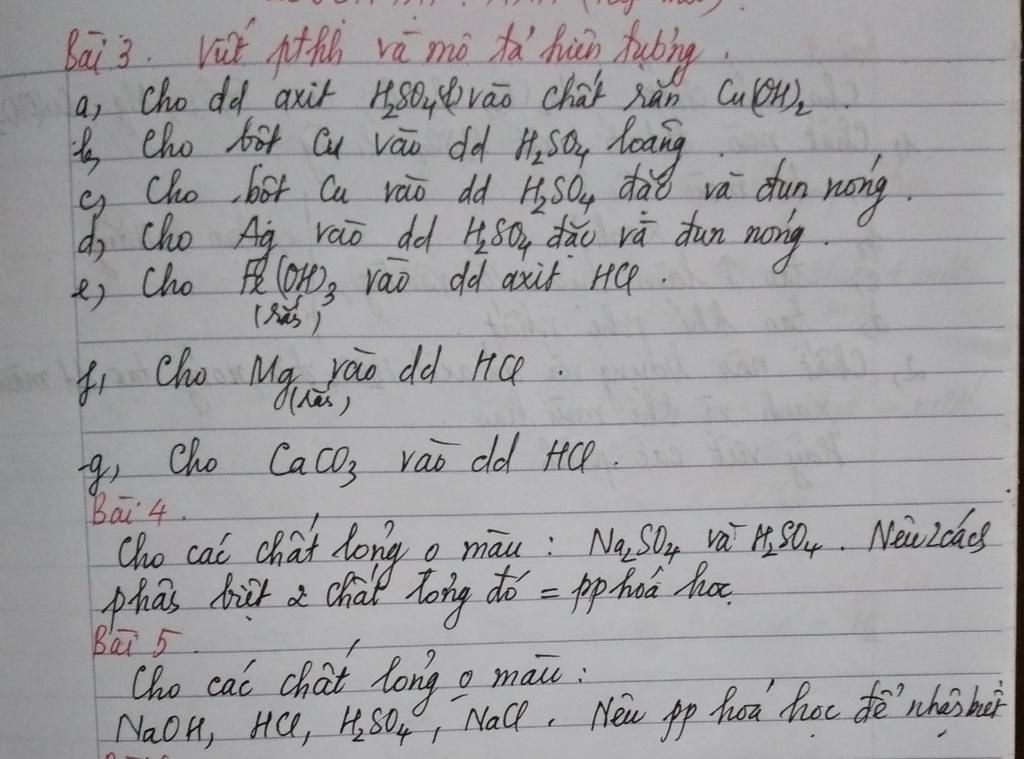 Bài 3. Viết ptHh và mô tả hiện tượng.
a, Cho dd axit H₂SO₄(l) vào chất rắn Cu(OH)₂.
b, Cho bột Cu vào dd H₂SO₄ loãng.
c, Cho bột Cu vào dd H₂SO₄ đặc và đun nóng.
d, Cho Ag vào dd H₂SO₄ đặc và đun nóng.
e, Cho Fe(OH)₃ vào dd axit HCl.
(rắn)
f, Cho Mg vào dd HCl.
(rắn)
g, Cho CaCO₃ vào dd HCl.
Bài 4.
Cho các chất lỏng o màu: Na₂SO₄ và H₂SO₄. Nêu 2 cách
phân biệt 2 chất lỏng đó = pp hoá học.
Bài 5.
Cho các chất lỏng o màu:
NaOH, HCl, H₂SO₄, NaCl. Nêu pp hoá học để nhận biết